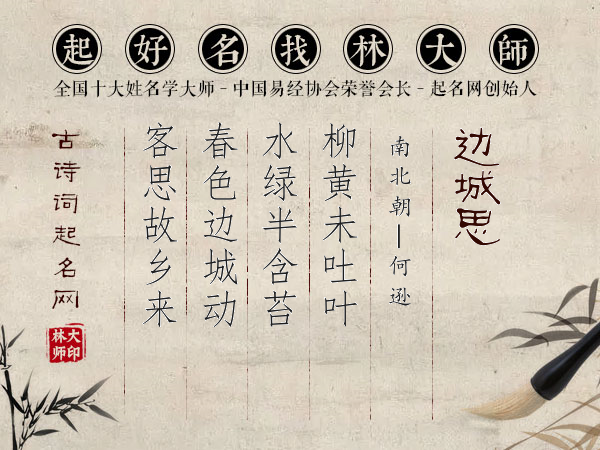 起好名找林大師
全国十大姓名学大师 - 中国易经协会荣誉会长 - 起名网创始人
边城思
南北朝—何逊
柳黄未吐叶
水绿半含苔
春色边城动
客思故乡来
古诗词起名网
大师林印